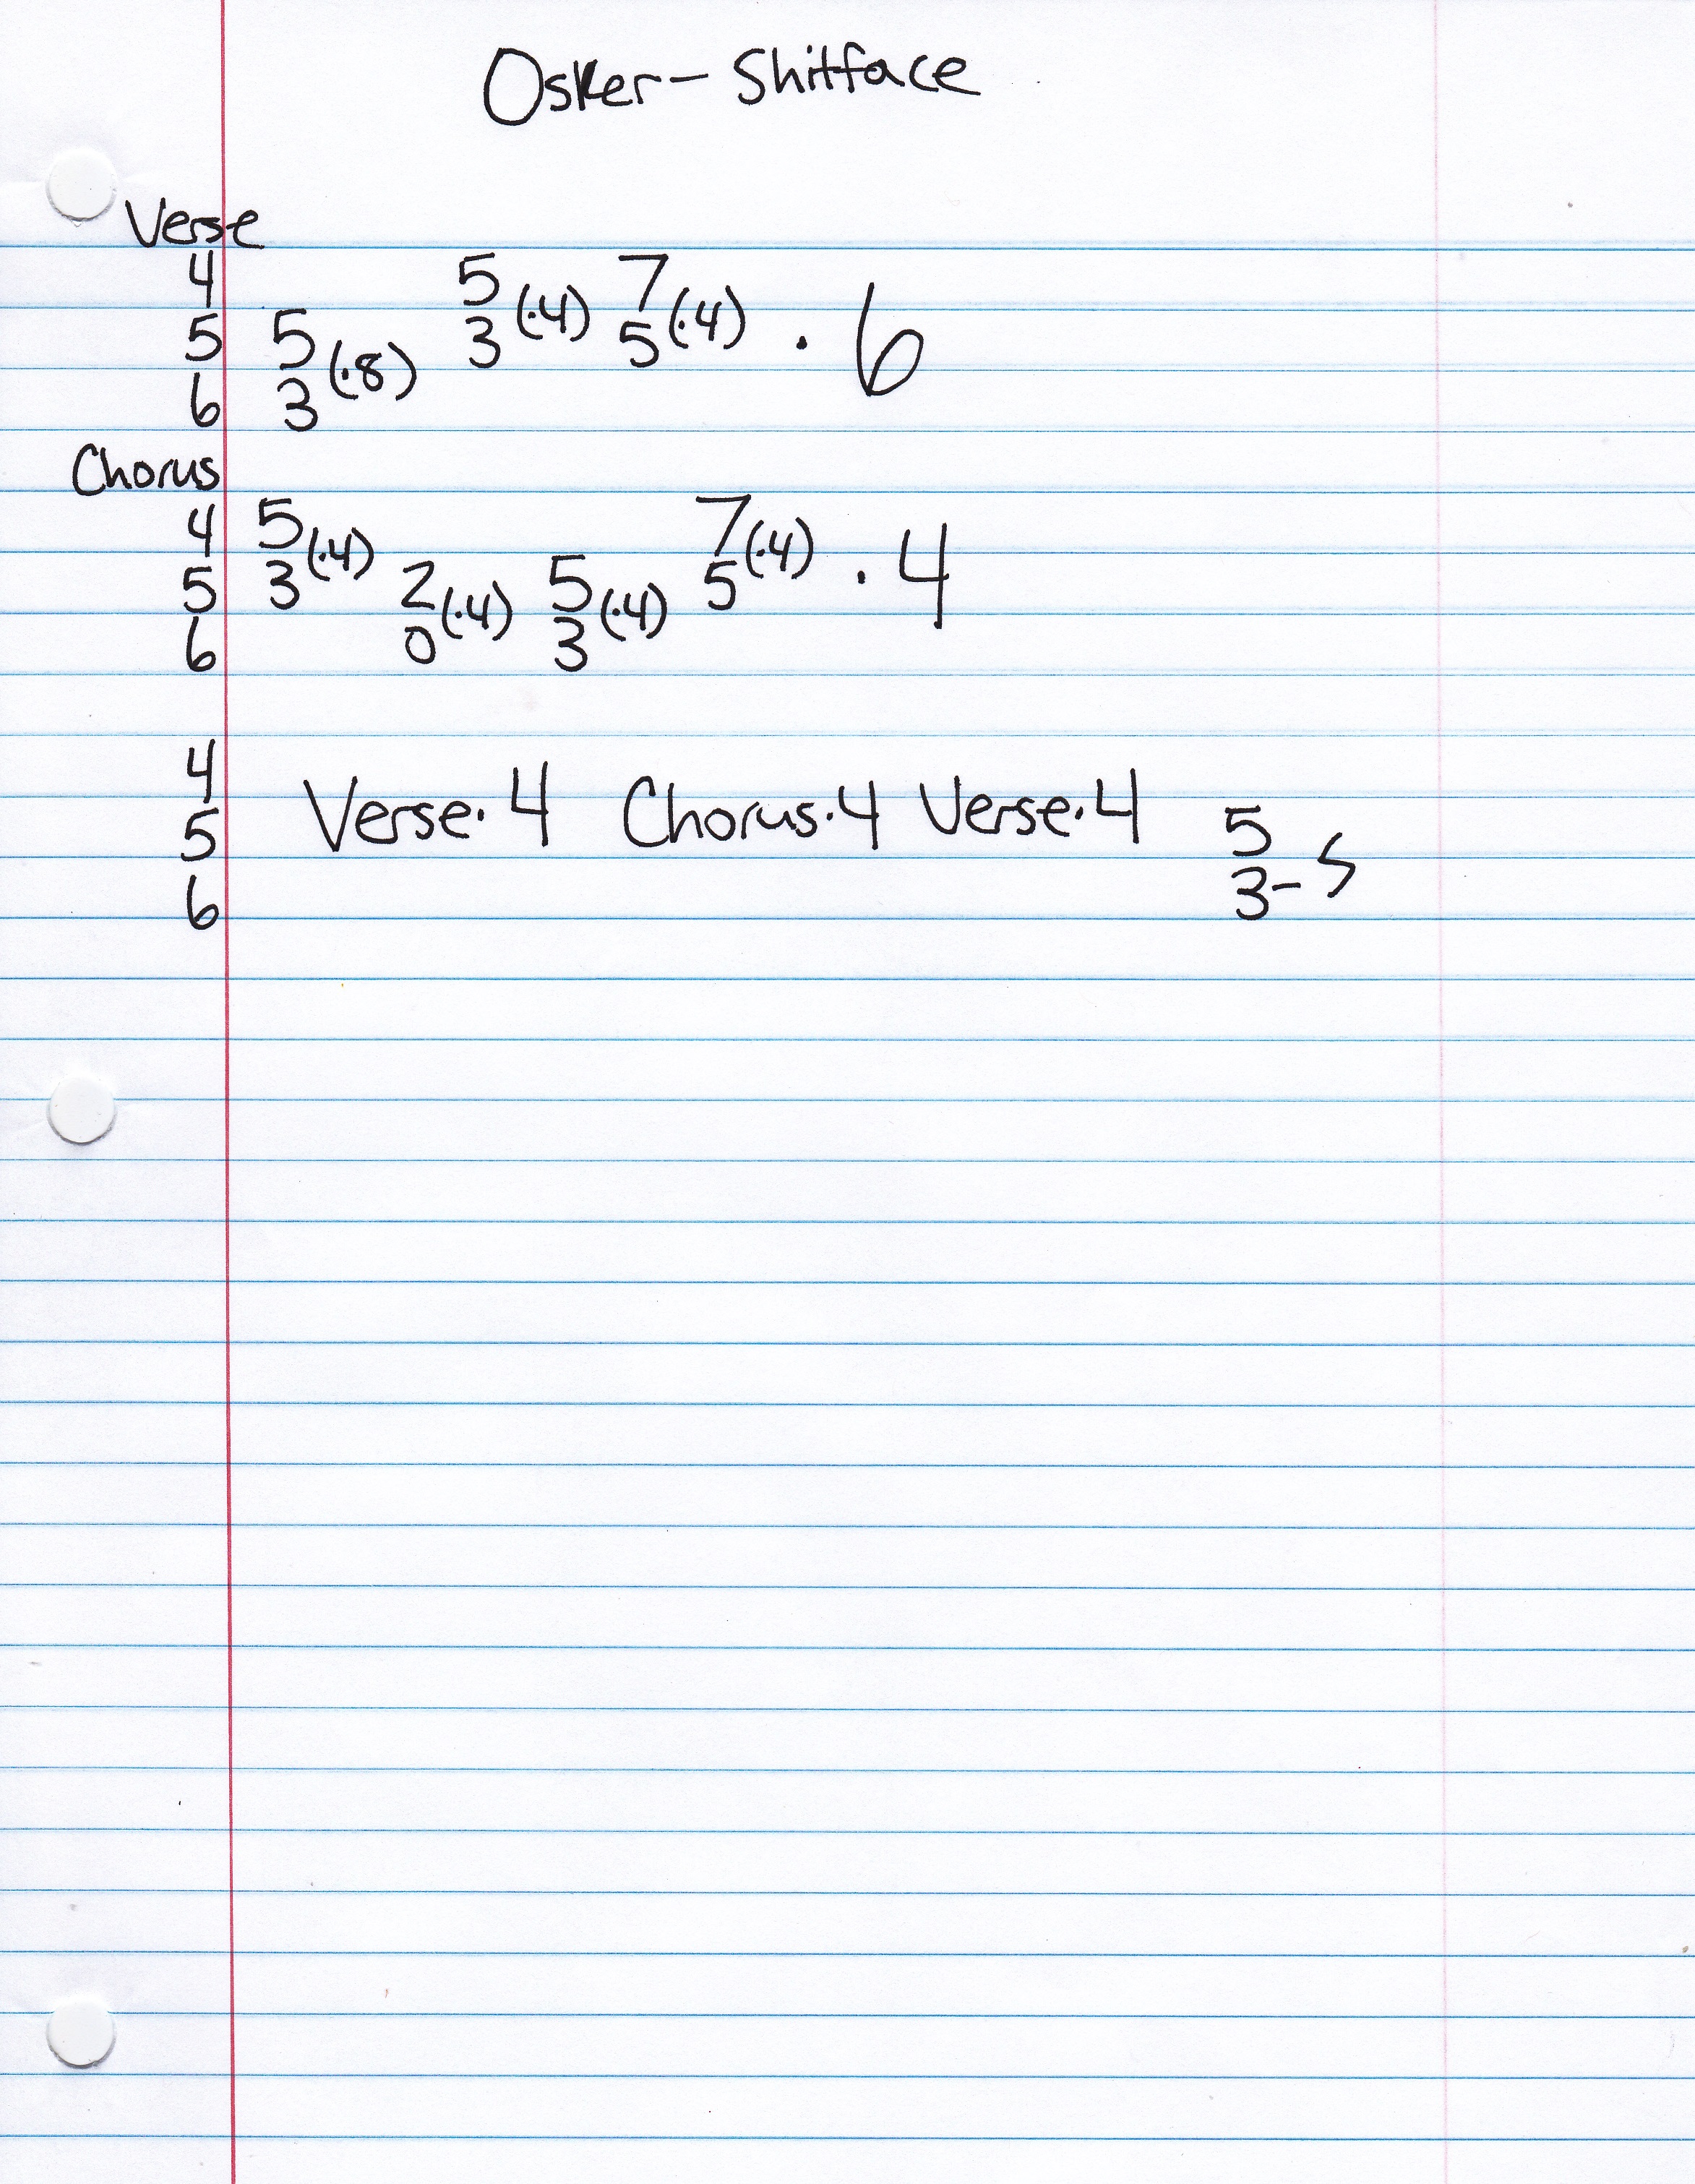 Osker - Shitface
Verse
4 5 7
5 5 (·8) 3 (·4) 5 (·4) · 6
6 3
Chorus
4 5 (·4) 7 (·4) · 4
5 3 2 (·4) 5 (·4) 5
6 0 3
4
5 Verse·4 Chorus·4 Verse·4 5
6 3-